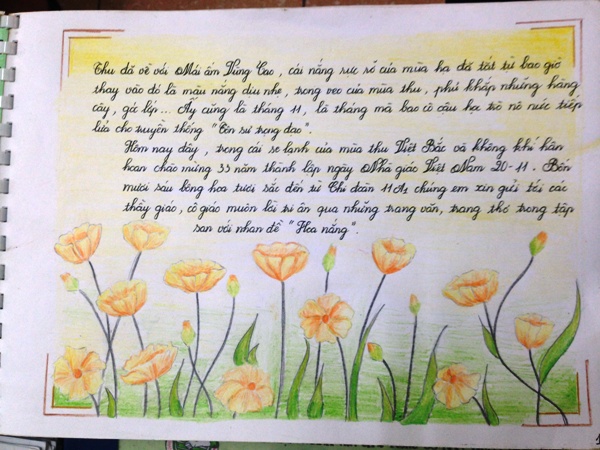 Thu đã về với Mái ấm Vùng Cao, cái nắng rực rỡ của mùa hạ đã tắt từ bao giờ
thay vào đó là màu nắng dịu nhẹ, trong veo của mùa thu, phủ khắp những hàng
cây, góc lớp... Ấy cũng là tháng 11, là tháng mà bao cô cậu học trò nô nức tiếp
lửa cho truyền thống "Tôn sư trọng đạo".
Hôm nay đây, trong cái se lạnh của mùa thu Việt Bắc và không khí hân
hoan chào mừng 33 năm thành lập ngày Nhà giáo Việt Nam 20-11. Bốn
mươi sáu bông hoa tươi sắc đến từ Chi đoàn 11A2 chúng em xin gửi tới các
thầy giáo, cô giáo muôn lời tri ân qua những trang văn, trang thơ trong tập
san với nhan đề "Hoa nắng".